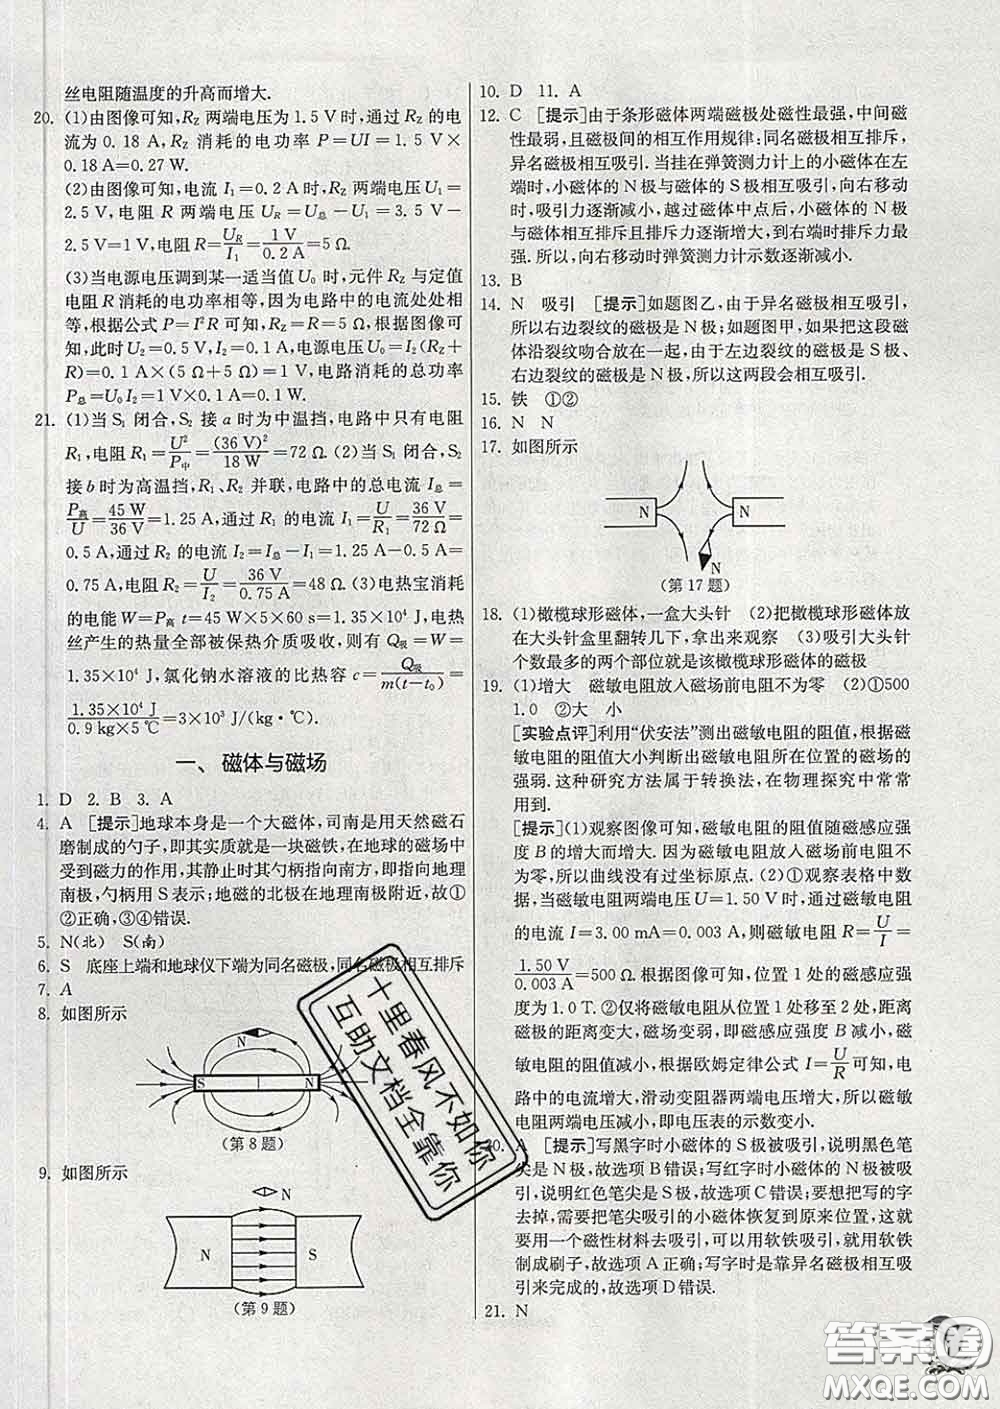 丝电阻随温度的升高而增大.
20. (1)由图像可知,R_Z 两端电压为 1.5 V时,通过 R_Z 的电
流为 0.18 A,R_Z 消耗的电功率 P=UI=1.5 V×
0.18 A=0.27 W.
(2)由图像可知,电流 I₁=0.2 A时,R_Z 两端电压 U₁=
2.5 V,电阻 R 两端电压 U_R=U总−U₁=3.5 V−
2.5 V=1 V,电阻 R=U_R/I₁=1 V/0.2 A=5 Ω.
(3)当电源电压调到某一适当值 U₀ 时,元件 R_Z 与定值
电阻 R 消耗的电功率相等,因为电路中的电流处处相
等,根据公式 P=I²R 可知,R_Z=R=5 Ω,根据图像可
知,此时 U₂=0.5 V,I₂=0.1 A,电源电压 U₀=I₂(R_Z+
R)=0.1 A×(5 Ω+5 Ω)=1 V,电路消耗的总功率
P总=U₀I₂=1 V×0.1 A=0.1 W.
21. (1)当 S₁ 闭合,S₂ 接 a 时为中温挡,电路中只有电阻
R₁,电阻 R₁=U²/P中=(36 V)²/18 W=72 Ω.(2)当 S₁ 闭合,S₂
接 b 时为高温挡,R₁、R₂ 并联,电路中的总电流 I总=
P高/U=45 W/36 V=1.25 A,通过 R₁ 的电流 I₁=U/R₁=36 V/72 Ω=
0.5 A,通过 R₂ 的电流 I₂=I总−I₁=1.25 A−0.5 A=
0.75 A,电阻 R₂=U/I₂=36 V/0.75 A=48 Ω.(3)电热宝消耗
的电能 W=P高 t=45 W×5×60 s=1.35×10⁴ J,电热
丝产生的热量全部被保热介质吸收,则有 Q吸=W=
1.35×10⁴ J,氯化钠水溶液的比热容 c=Q吸/m(t−t₀)=
1.35×10⁴ J/0.9 kg×5 ℃=3×10³ J/(kg·℃).
一、磁体与磁场
1. D 2. B 3. A
4. A [提示]地球本身是一个大磁体,司南是用天然磁石
磨制成的勺子,即其实质就是一块磁铁,在地球的磁场中
受到磁力的作用,其静止时其勺柄指向南方,即指向地理
南极,勺柄用 S 表示;地磁的北极在地理南极附近,故①
②正确,③④错误.
5. N(北) S(南)
6. S 底座上端和地球仪下端为同名磁极,同名磁极相互排斥
7. A
8. 如图所示
N
S N
(第 8 题)
9. 如图所示
N
N S
(第 9 题)
10. D 11. A
12. C [提示]由于条形磁体两端磁极处磁性最强,中间磁
性最弱,且磁极间的相互作用规律:同名磁极相互排斥,
异名磁极相互吸引.当挂在弹簧测力计上的小磁体在左
端时,小磁体的 N 极与磁体的 S 极相互吸引,向右移动
时,吸引力逐渐减小,越过磁体中点后,小磁体的 N 极
与磁体相互排斥且排斥力逐渐增大,到右端时排斥力最
强.所以,向右移动时弹簧测力计示数逐渐减小.
13. B
14. N 吸引 [提示]如题图乙,由于异名磁极相互吸引,
所以右边裂纹的磁极是 N 极;如题图甲,如果把这段磁
体沿裂纹吻合放在一起,由于左边裂纹的磁极是 S 极、
右边裂纹的磁极是 N 极,所以这两段会相互吸引.
15. 铁 ①②
16. N N
17. 如图所示
N N
N
(第 17 题)
18. (1)橄榄球形磁体,一盒大头针 (2)把橄榄球形磁体放
在大头针盒里翻转几下,拿出来观察 (3)吸引大头针
个数最多的两个部位就是该橄榄球形磁体的磁极
19. (1)增大 磁敏电阻放入磁场前电阻不为零 (2)①500
1.0 ②大 小
[实验点评]利用“伏安法”测出磁敏电阻的阻值,根据磁
敏电阻的阻值大小判断出磁敏电阻所在位置的磁场的
强弱.这种研究方法属于转换法,在物理探究中常常
用到.
[提示](1)观察图像可知,磁敏电阻的阻值随磁感应强
度 B 的增大而增大.因为磁敏电阻放入磁场前电阻不
为零,所以曲线没有过坐标原点.(2)①观察表格中数
据,当磁敏电阻两端电压 U=1.50 V时,通过磁敏电阻
的电流 I=3.00 mA=0.003 A,则磁敏电阻 R=U/I=
1.50 V/0.003 A=500 Ω.根据图像可知,位置 1 处的磁感应强
度为 1.0 T.②仅将磁敏电阻从位置 1 处移至 2 处,距离
磁极的距离变大,磁场变弱,即磁感应强度 B 减小,磁
敏电阻的阻值减小,根据欧姆定律公式 I=U/R可知,电
路中的电流增大,滑动变阻器两端电压增大,所以磁敏
电阻两端电压减小,即电压表的示数变小.
20. A [提示]写黑字时小磁体的 S 极被吸引,说明黑色笔
尖是 N 极,故选项 B 错误;写红字时小磁体的 N 极被吸
引,说明红色笔尖是 S 极,故选项 C 错误;要想把写的字
去掉,需要把笔尖吸引的小磁体恢复到原来位置,这就
要用一个磁性材料去吸引,可以用软铁吸引,就用软铁
制成刷子,所以选项 A 正确;写字时是靠异名磁极相互吸
引来完成的,故选项 D 错误.
21. N
十里春风不如你
互助文档全靠你
答案圈
MXQE.COM